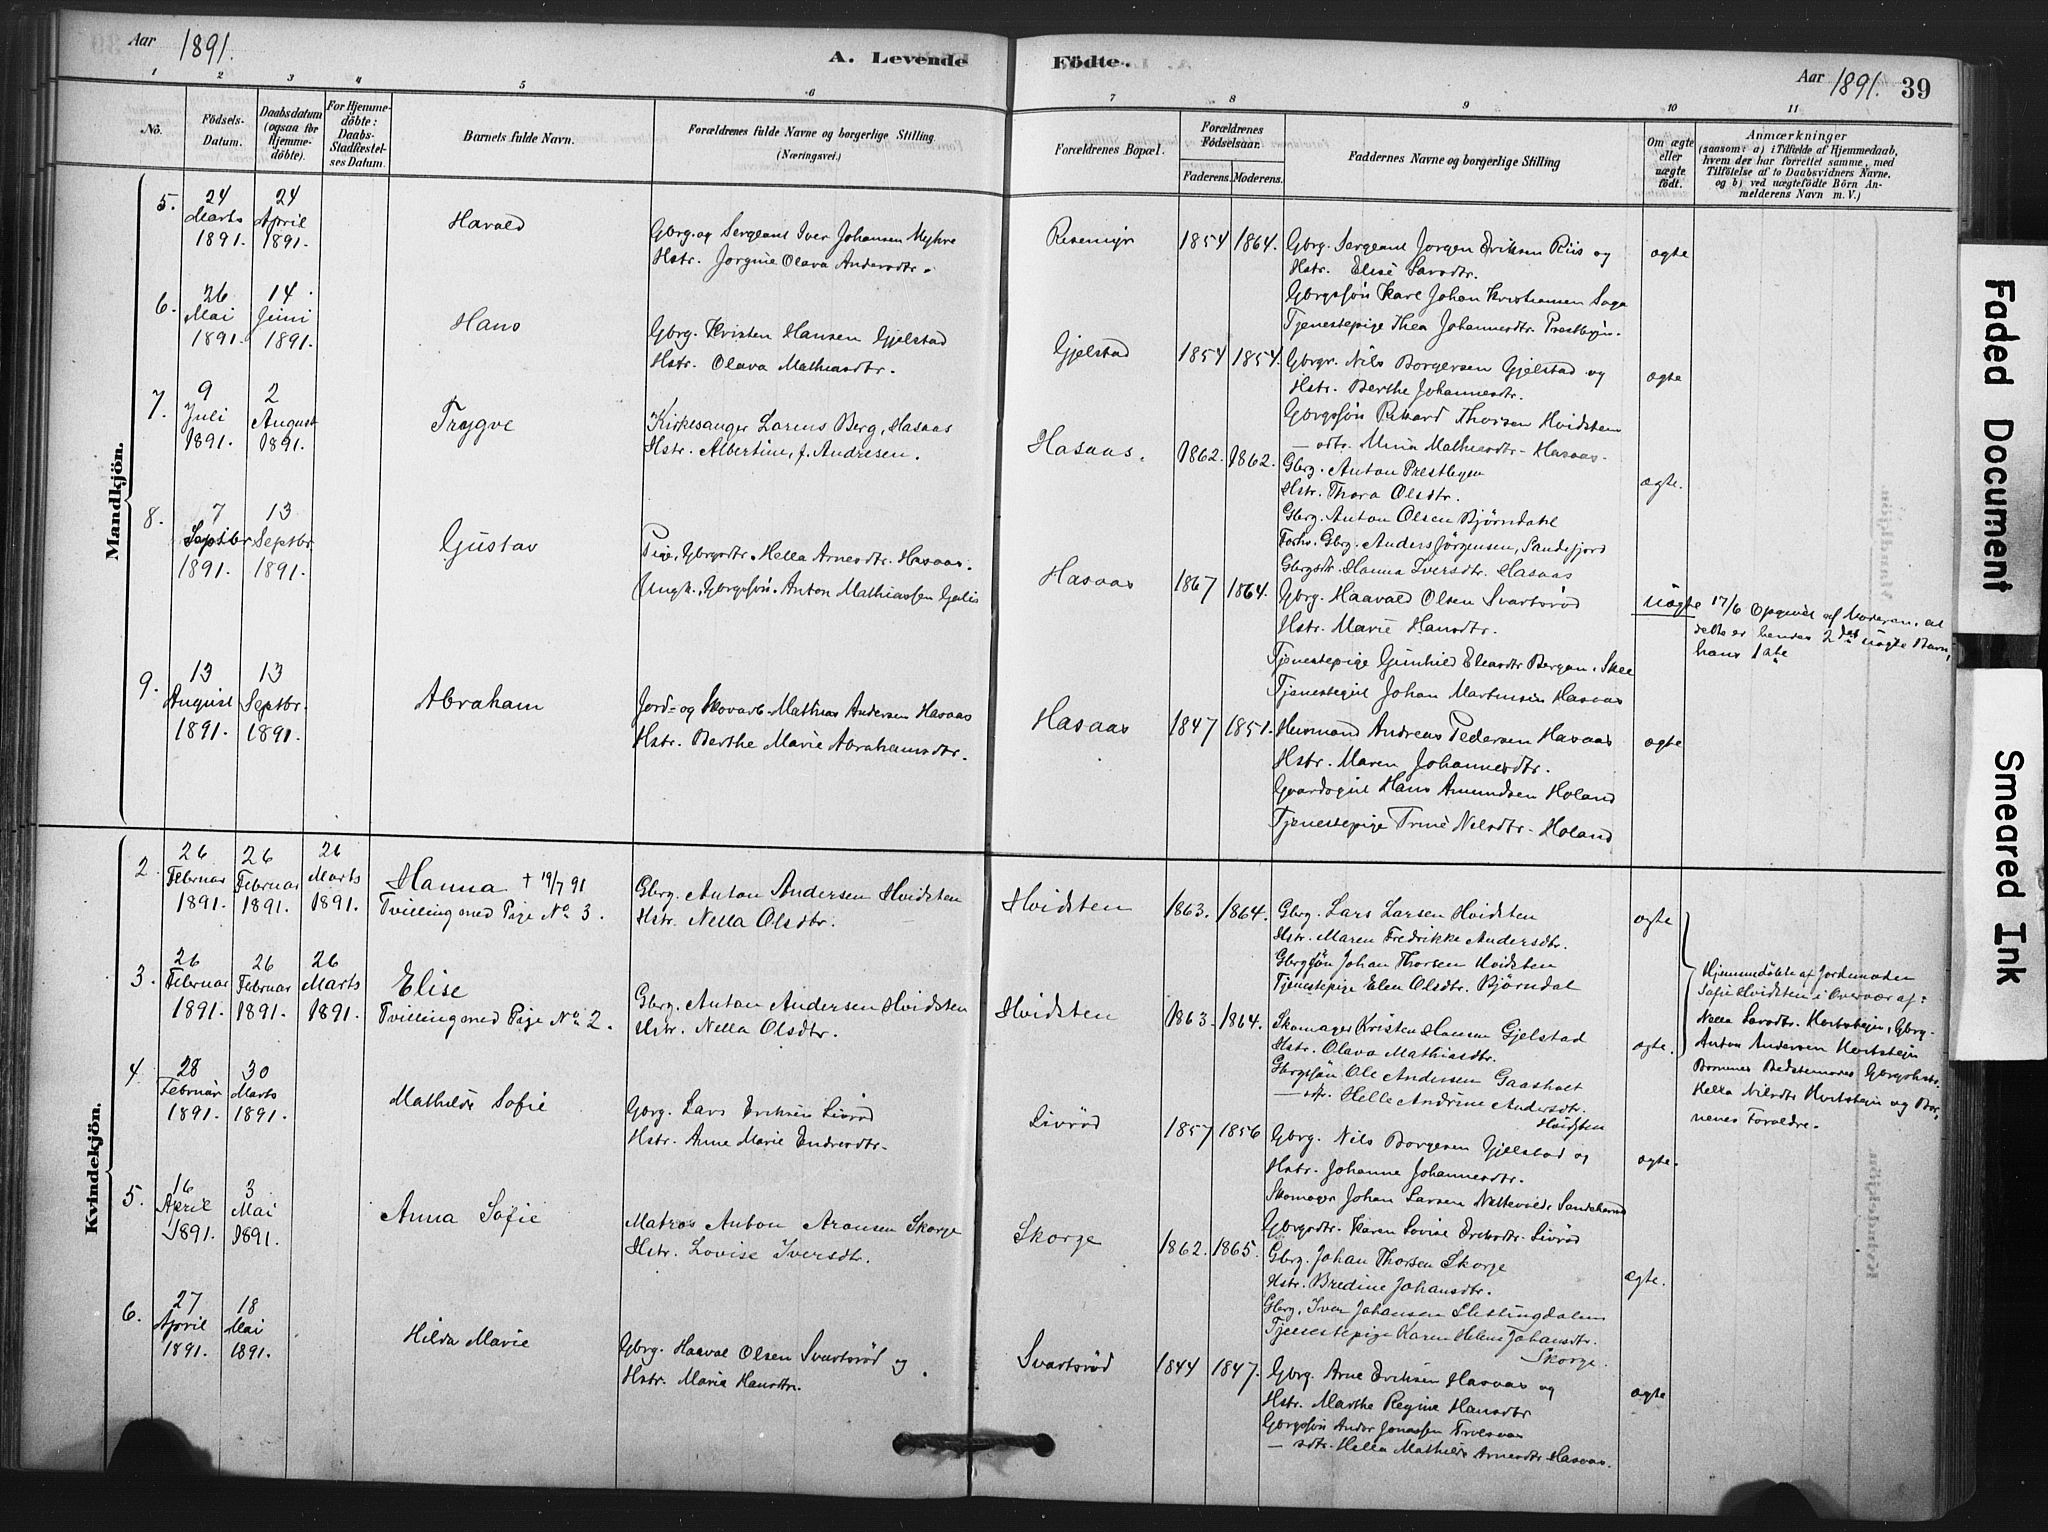 Aar 1891.
A. Levende Födte.
Aar 1891. 39
1 2 3 4 5 6 7 8 9 10 11
No.
Födsels-Datum.
Daabsdatum (ogsaa for Hjemmedöbte).
For Hjemmedöbte: Daabs-Stadfæstelses Datum.
Barnets fulde Navn.
Forældrenes fulde Navne og borgerlige Stilling (Næringsvei.)
Forældrenes Bopæl.
Forældrenes Födselsaar.
Faderens. Moderens.
Faddernes Navne og borgerlige Stilling
Om ægte eller uægte födt.
Anmærkninger
(saasom: a) i Tilfælde af Hjemmedaab, hvem der har forrettet samme, med Tilföielse af to Daabsvidners Navne. og b) ved uægtefödte Börn Anmelderens Navn m. V.)
Mandkjön.
5.
24 Marts 1891.
24 April 1891.
Havald
Gbrg. og Sergeant Iver Johansen Myhre
Hstr. Jorgine Olava Andersdtr.
Risemyr
1854 1864.
Gbrg. Sergeant Jorgen Eriksen Riis og
Hstr. Elise Larsdtr.
Gbrgssön Karl Johan Kristiansen Saga
Tjenestepige Thea Johannesdtr. Prestbyen.
ægte
6.
26 Mai 1891.
14 Juni 1891.
Hans
Gbrg. Kristen Hansen Gjelstad
Hstr. Olava Mathiasdtr.
Gjelstad
1854 1854.
Gbrgr. Nils Borgersen Gjelstad og
Hstr. Berthe Johannesdtr.
Gbrgssön Rikard Thorsen Hvidsten
— sdtr. Mina Mathiesdtr. Hasaas.
ægte
7.
9 Juli 1891.
2 August 1891.
Trygve
Kirkesanger Lorens Berg, Hasaas
Hstr. Albertine, f. Andresen.
Hasaas.
1862. 1862.
Gbrg. Anton Prestbyen
Hstr. Thora Olsdtr.
Gbrg. Anton Olsen Björndahl
Forhv. Gbrg. Anders Jörgensen, Sandefjord
Gbrgsdtr. Hanna Iversdtr. Hasaas
ægte.
8.
7 Septbr 1891.
13 Septbr 1891.
Gustav
Pige, Gbrgsdtr. Hella Arnesdtr. Hasaas.
Ungk., Gbrgssön. Anton Mathiassen
Hasaas
1867 1864.
Gbrg. Haavald Olsen Svartsröd
Hstr. Marie Hansdtr.
Tjenestepige Gunhild Bergan, Skee
Tjenestegut Johan Martinsen Hasaas
uægte
17/6 Opgivet af Moderen, at
dette er hendes 2det uægte Barn,
hans 1ste
9.
13 August 1891.
13 Septbr. 1891.
Abraham
Jord- og Skovarb. Mathias Andersen Hasaas
Hstr. Berthe Marie Abrahamsdtr.
Hasaas
1847 1851.
Husmand Andreas Pedersen Hasaas
Hstr. Maren Johannesdtr.
Gaardsgut Hans Amundsen Holand
Tjenestepige Trine Nilsdtr. Holand
ægte
Kvindekjön.
2.
26 Februar 1891.
26 Februar 1891.
26 Marts 1891.
Hanna † 19/7 91
Tvilling med Pige No. 3.
Gbrg. Anton Andersen Hvidsten
Hstr. Nella Olsdtr.
Hvidsten
1863. 1864.
Gbrg. Lars Larsen Hvidsten
Hstr. Maren Fredrikke Andersdtr.
Gbrgssön Johan Thorsen Hvidsten
Tjenestepige Elen Olsdtr. Björndal
ægte
Hjemmedöbte af Jordemoder
Sofie Hvidsten i Overvær af:
Nella Larsdtr. Hvitstejn, Gbrg.
Anton Andersen Hvitstejn
Bornenes Bedstemoder Gbrgshstr.
Hella Nilsdtr Hvitstejn og Bör-
nenes Forældre.
3.
26 Februar 1891.
26 Februar 1891.
26 Marts 1891.
Elise
Tvilling med Pige No. 2.
Gbrg. Anton Andersen Hvidsten
Hstr. Nella Olsdtr.
Hvidsten
1863. 1864.
Skomager Kristen Hansen Gjelstad
Hstr. Olava Mathiasdtr.
Gbrgssön Ole Andersen Gaasholt
— dtr. Helle Andrine Andersdtr.
Hvidsten
ægte.
4.
28 Februar 1891.
30 Marts 1891.
Mathilde Sofie
Gbrg. Lars Eriksen Livröd
Hstr. Anne Marie Endresdtr.
Livröd
1857 1856
Gbrg. Nils Borgersen Gjelstad og
Hstr. Johanne Johannesdtr.
Skomager Johan Larsen Nattevold, Sandeherred
Gbrgsdtr. Karen Lovise Eriksdtr. Livröd
ægte.
5.
16 April 1891.
3 Mai 1891.
Anna Sofie
Matros Anton Aronsen Skorge
Hstr. Lovise Iversdtr.
Skorge
1862. 1865.
Gbrg. Johan Thorsen Skorge
Hstr. Bredine Johansdtr.
Gbrg. Iver Johansen Slettingdalen
Tjenestepige Karen Helene Johansdtr.
Skorge.
ægte.
6.
27 April 1891.
18 Mai 1891.
Hilda Marie
Gbrg. Haaval Olsen Svartsröd og
Hstr. Maria Hansdtr.
Svartsröd
1844 1847.
Gbrg. Arne Eriksen Hasaas og
Hstr. Marthe Regine Hansdtr
Gbrgssön Andor Jonassen
— sdtr. Hella Mathilde Arnesdtr Hasaas.
ægte
Faded Document
Smeared Ink